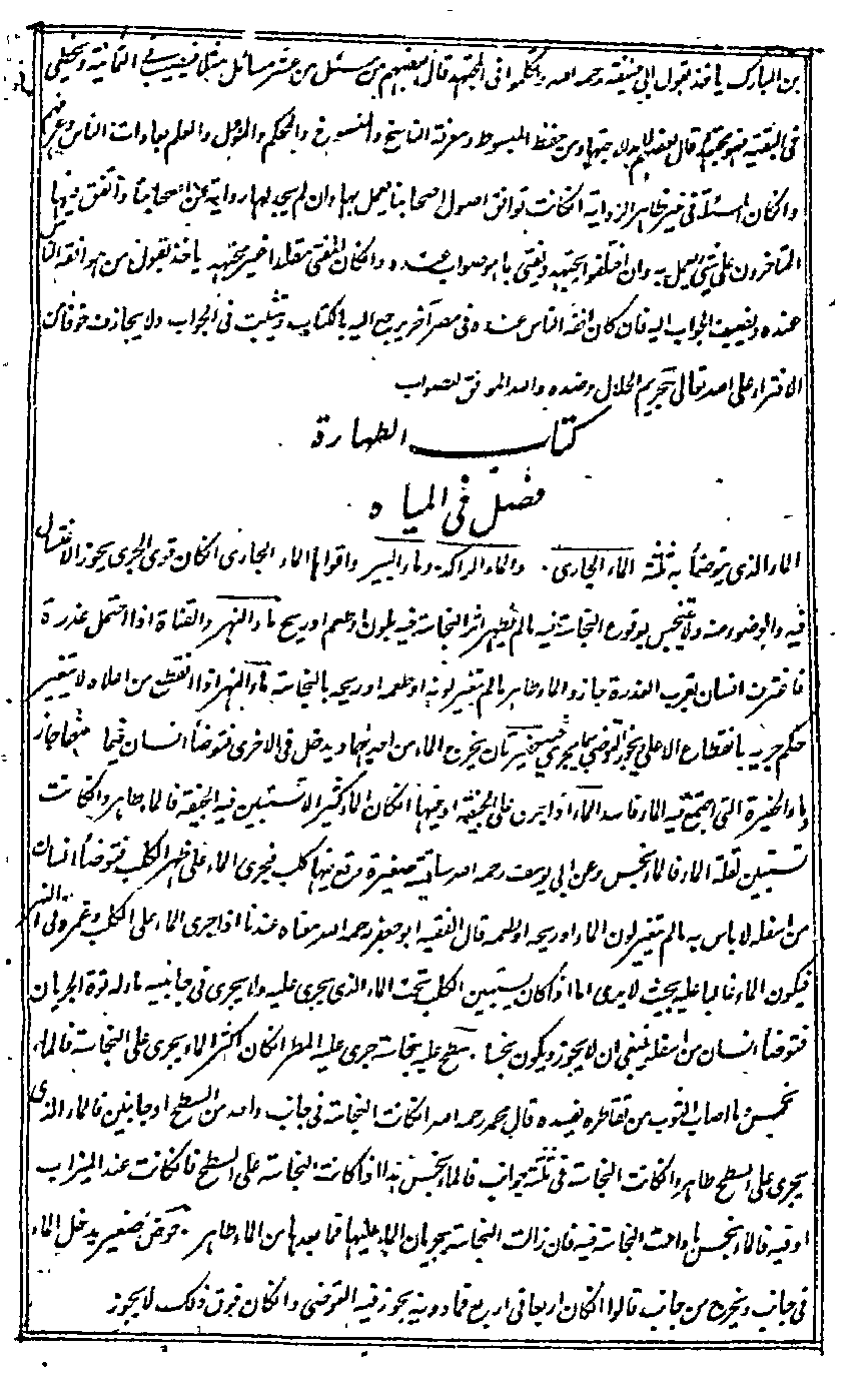 بن المبارك ياخذ بقول ابي حنيفة رحمه الله وتكلموا في المجتهد قال بعضهم من سئل عن عشر مسائل مثلا فيصيب في الثمانية ويخطئ
في البقية فهو مجتهد وقال بعضهم لا بد للاجتهاد من حفظ المبسوط ومعرفة الناسخ والمنسوخ والمحكم والمؤول والعلم بعادات الناس وعرفهم
وانكان المسئلة في غير ظاهر الرواية انكانت توافق اصول اصحابنا يعمل بها وان لم يجد لها رواية عن اصحابنا واتفق فيها
المتاخرون على شئ يعمل به وان اختلفوا يجتهد ويفتي بما هو صواب عنده وانكان المفتي مقلدا غير مجتهد ياخذ بقول من هو افقه الناس
عنده ويضيف الجواب اليه فان كان افقه الناس عنده في مصر آخر يرجع اليه بالكتاب ويتثبت في الجواب ولا يجازف خوفا من
الافتراء على الله تعالى بتحريم الحلال وضده والله الموفق للصواب
كتاب الطهارة
فصل في المياه
الماء الذي يتوضأ به ثلثة الماء الجاري والماء الراكد وماء البير واقواها الماء الجاري انكان قوي الجري يجوز الاغتسال
فيه والوضوء منه ولا يتنجس بوقوع النجاسة فيه مالم يظهر اثر النجاسة فيه بلون او طعم او ريح ماء النهر والقناة اذا احتمل عذرة
فاغترف انسان بقرب العذرة جاز والماء طاهر مالم يتغير لونه او طعمه او ريحه بالنجاسة ماء النهر اذا انقطع من اعلاه لا يتغير
حكم جريه بانقطاع الاعلى يجوز التوضي بما يجري في النهر حفيرتان يخرج الماء من احدهما ويدخل في الاخرى فتوضأ انسان فيما بينهما جاز
وماء الحفيرة التي اجتمع فيه الماء فاسد الماء اذا جرى على الجيفة او فيها انكان الماء كثيرا لا تستبين فيه الجيفة فالماء طاهر وانكانت
تستبين لقلة الماء فالماء نجس وعن ابي يوسف رحمه الله ساقية صغيرة وقع فيها كلب فجرى الماء على ظهر الكلب فتوضأ انسان
من اسفله لا باس به مالم يتغير لون الماء او ريحه او طعمه قال الفقيه ابو جعفر رحمه الله معناه عندنا اذا جرى الماء على الكلب وغمره في النهر
فيكون الماء غالبا عليه بحيث لا يرى اما اذا كان يستبين الكلب تحت الماء الذي يجري عليه ولا يجري في جانبيه ماء له قوة الجريان
فتوضأ انسان من اسفله ينبغي ان لا يجوز ويكون نجسا سطح عليه نجاسة جرى عليه المطر انكان اكثر الماء يجري على النجاسة فالماء
نجس وما اصاب الثوب من تقاطره يفسده قال محمد رحمه الله انكانت النجاسة في جانب واحد من السطح او جانبين فالماء الذي
يجري على السطح طاهر وانكانت النجاسة في ثلثة جوانب فالماء نجس هذا اذا كانت النجاسة على السطح فانكانت عند الميزاب
او فيه فالماء نجس ما دامت النجاسة فيه فان زالت النجاسة بجريان الماء عليها فما بعدها من الماء طاهر حوض صغير يدخل الماء
في جانب ويخرج من جانب قالوا انكان اربعا في اربع فما دونه يجوز فيه التوضي وانكان فوق ذلك لا يجوز